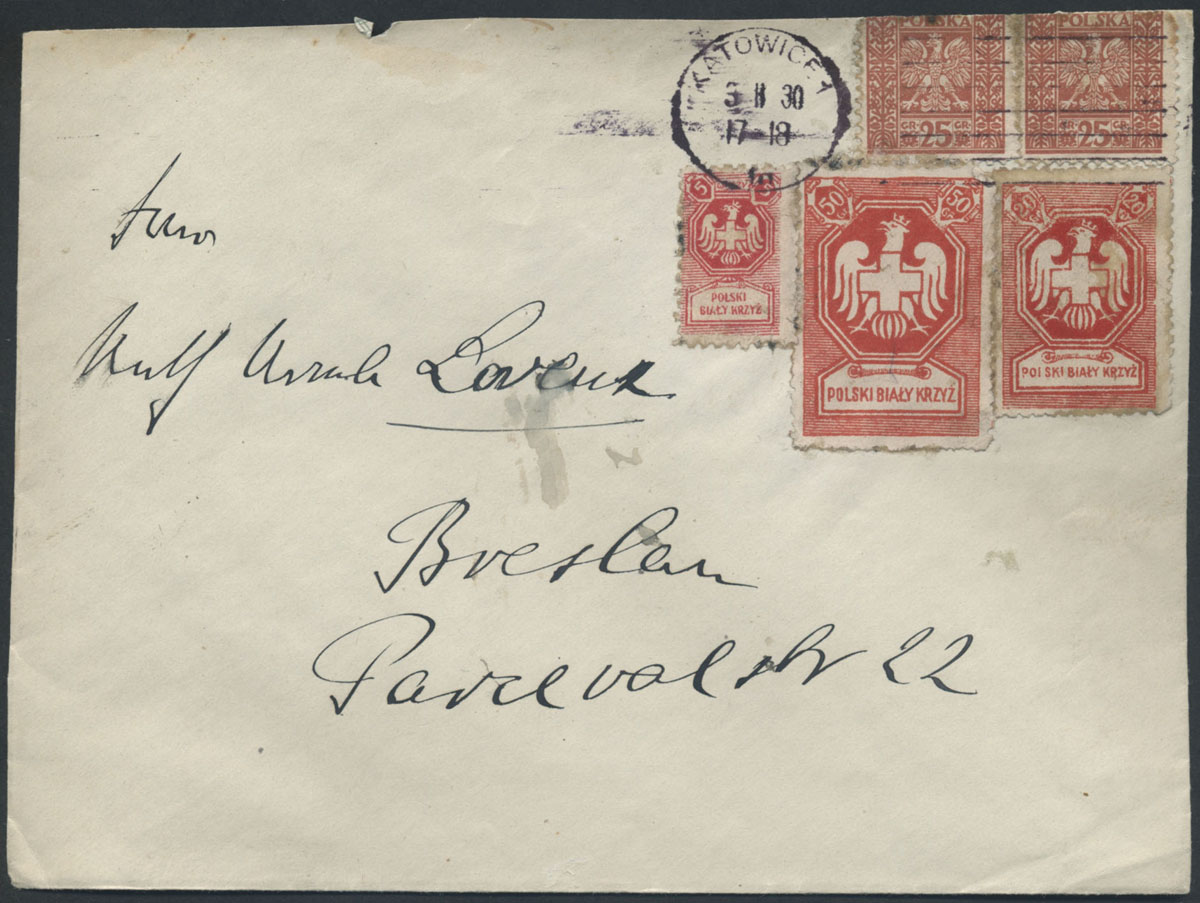 POLSKA POLSKA
KATOWICE 1
3 II 30
17-18
GR 25 GR GR 25 GR
5 5
50 50
20 20
POLSKI
BIAŁY KRZYŻ
POLSKI BIAŁY KRZYŻ
POLSKI BIAŁY KRZYŻ
Ursula
Breslau
Parcevalstr 22